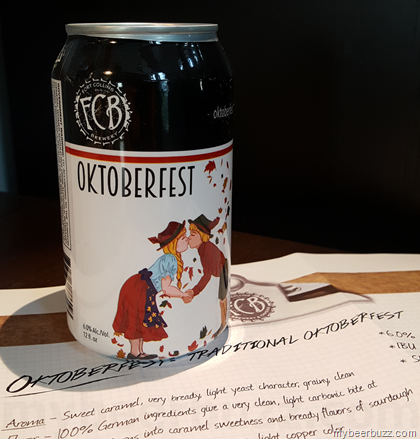 oktoberfe
FORT COLLINS
FCB
BREWERY
OKTOBERFEST
6.0% Alc./Vol.
12 fl. oz
FCB
OKTOBERFEST: TRADITIONAL OKTOBERFEST
• 6.0%
• IBU
Aroma – Sweet caramel, very bready, light yeast character, grainy, clean
– 100% German ingredients give a very clean, light carbonic bite at
into caramel sweetness and bready flavors of sourdough
light copper color
mybeerbuzz.com